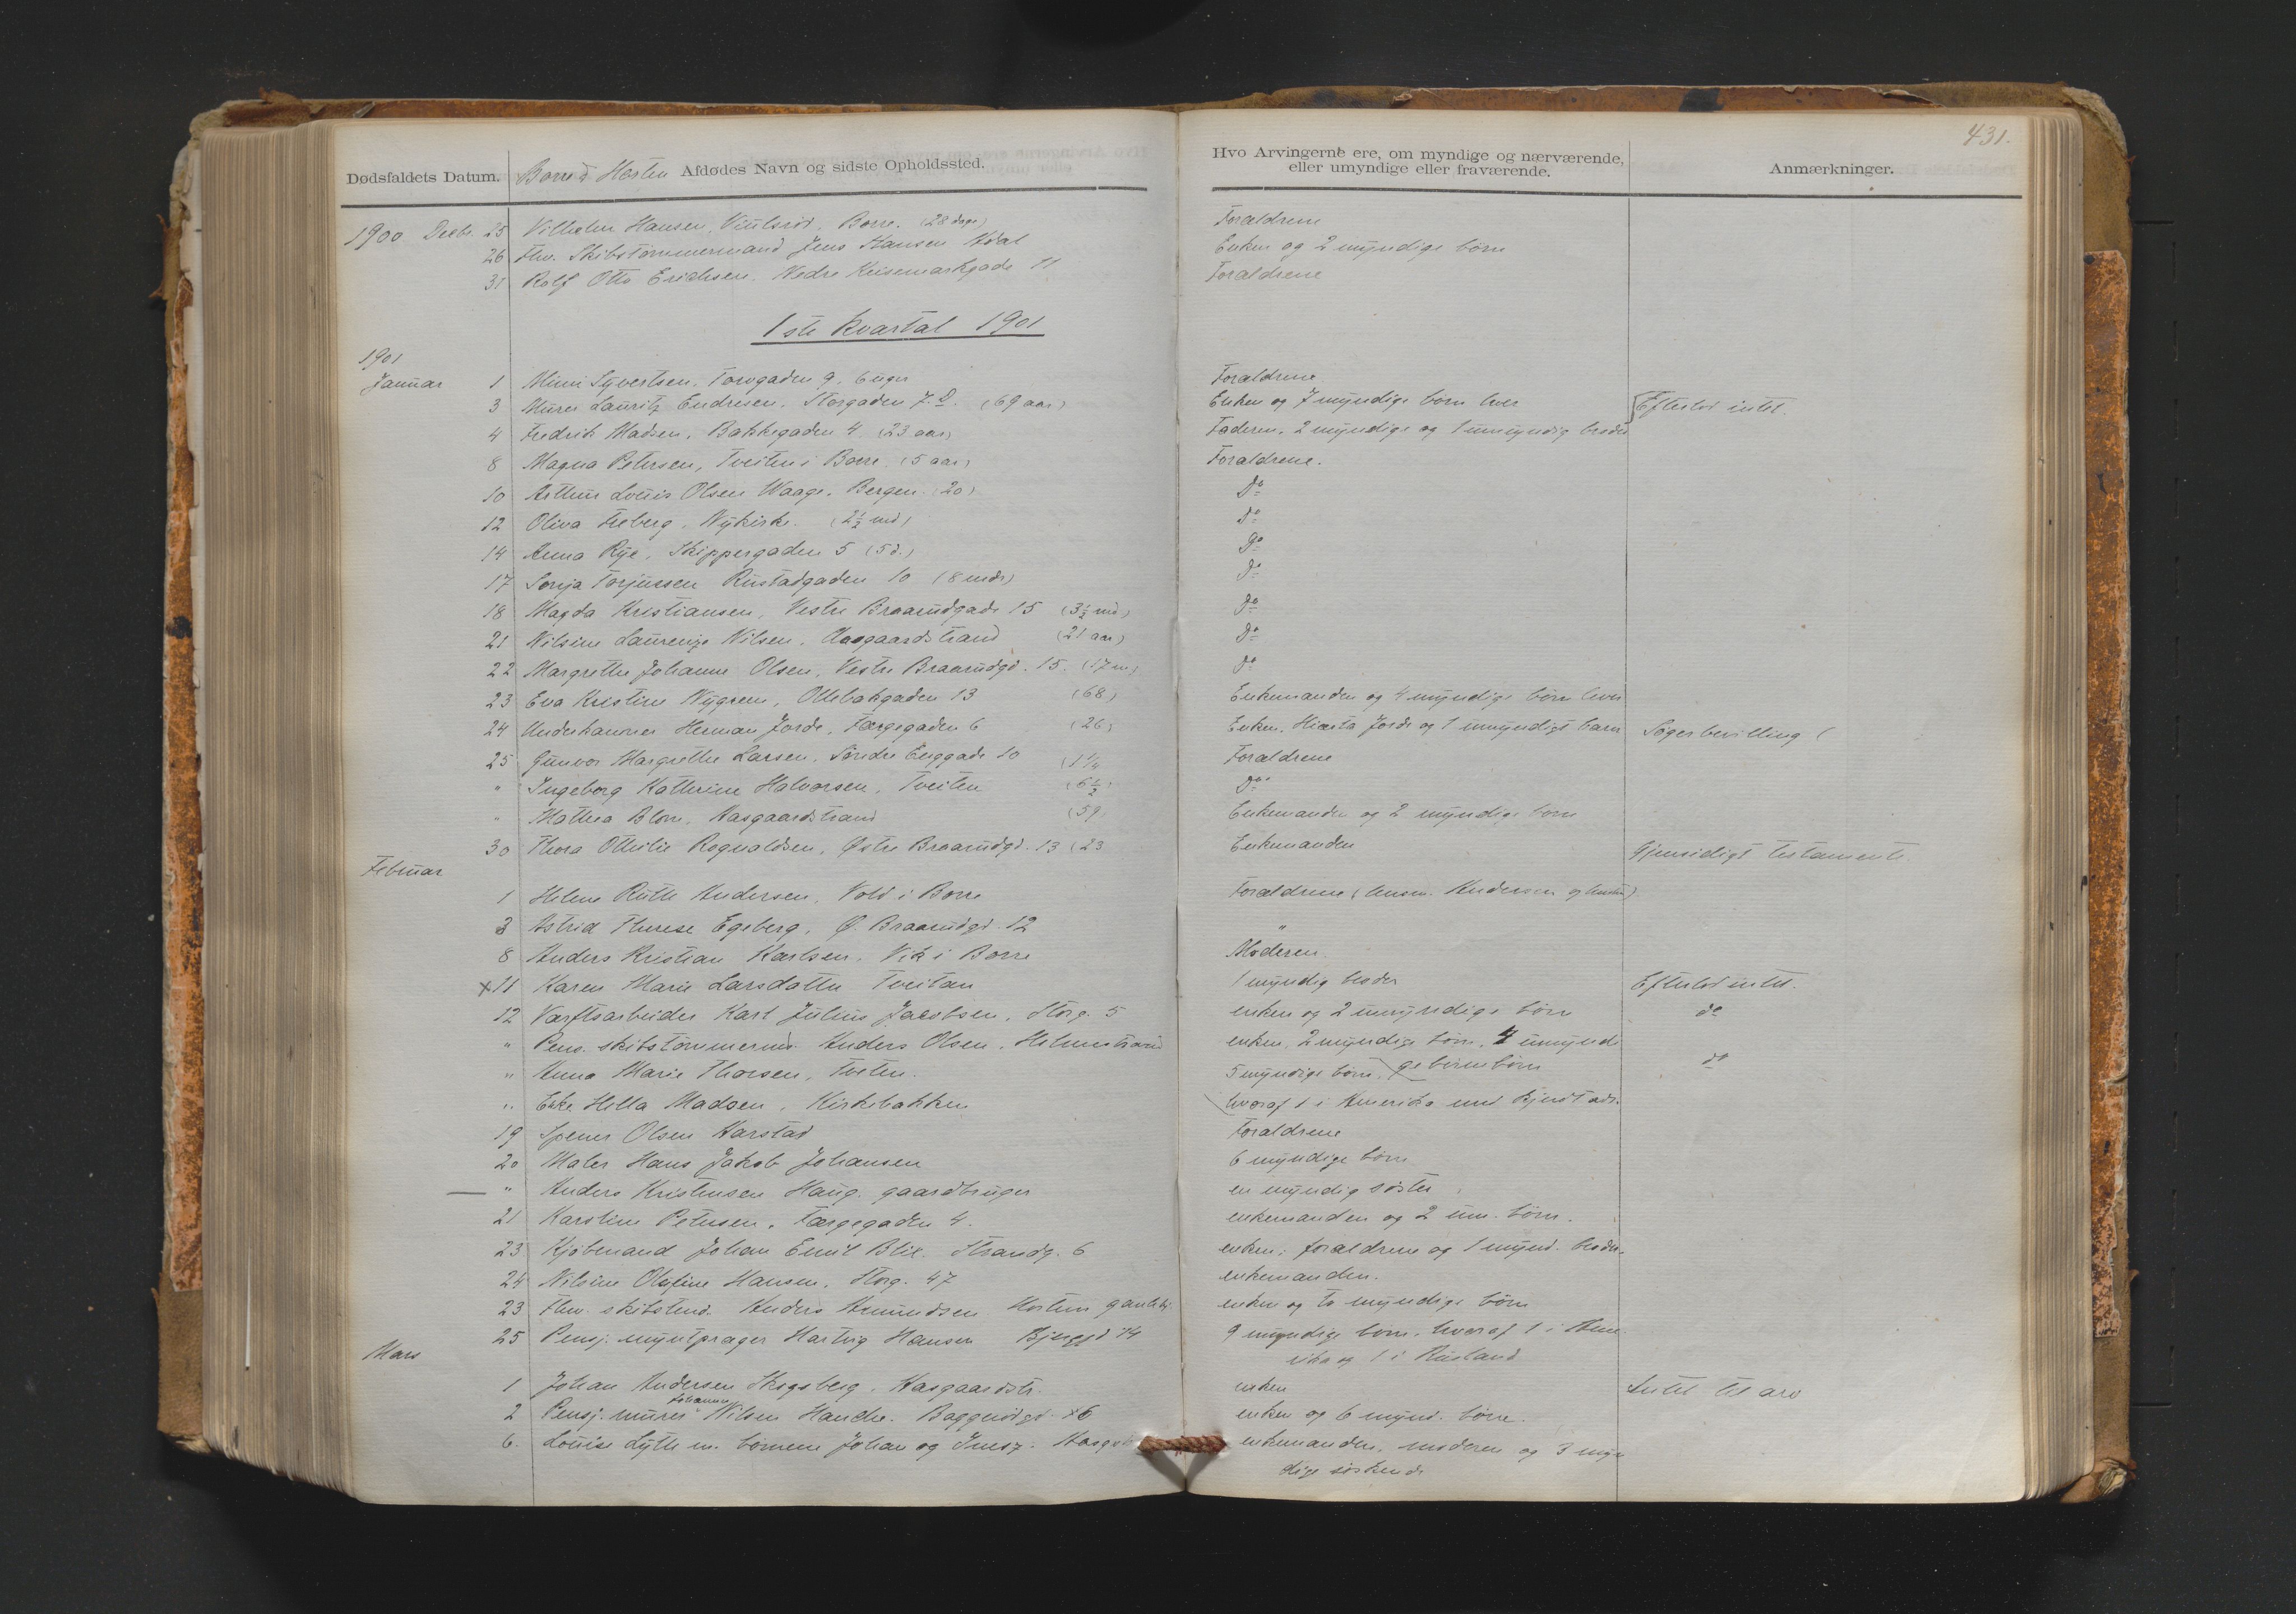 431.
Dødsfaldets Datum. Borre & Horten Afdødes Navn og sidste Opholdssted. Hvo Arvingerne ere, om myndige og nærværende, eller umyndige eller fraværende. Anmærkninger.
1900 Decbr. 25 Vilhelm Hansen, Borre. (28 dage) Forældrene
26 Fhv. Skibstømmermand Jens Hansen Adal Enken og 2 myndige børn
31 Rolf Otto Erichsen. Nedre Keisemarkgade 11 Forældrene
1ste Kvartal 1901
1901
Januar 1 Mimi Syvertsen. Torvgaden 9. 6 uger Forældrene
3 Murer Lauritz Endresen. Storgaden 7. D. (69 aar) Enken og 7 myndige børn lever Efterlod intet.
4 Fredrik Madsen. Bakkegaden 4. (23 aar) Faderen. 2 myndige og 1 umyndig broder
8 Magna Petersen, Tveiten i Borre. (5 aar) Forældrene.
10 Arthur Louis Olsen Waage. Bergen. (20) Do
12 Oliva Freberg, Nykirke. (2½ md) Do
14 Anna Rye, Skippergaden 5 (5 d.) Do
17 Sonja Torjursen Rustadgaden 10 (8 mdr) Do
18 Magda Kristiansen, Vestre Braarudgade 15 (3½ md) Do
21 Nilsine Laurenze Nilsen, Aasgaardstrand (21 aar) Do
22 Margrethe Johanne Olsen, Vestre Braarudgd. 15. (17 m) Do
23 Eva Kristine Nygren, Ollebakgaden 13 (68) Enkemanden og 4 myndige børn lever
24 Underkanoner Herman Jorde, Færgegaden 6 (26) Enken. Jorde og 1 umyndigt barn Søger bevilling
25 Gunvor Margrethe Larsen. Søndre Enggade 10 (1¼ Forældrene
" Ingeborg Kathrine Halvorsen, Tveiten (6½) Do
" Mathea Blom. Aasgaardstrand (59 Enkemanden og 2 myndige børn
30 Thora Othilie Rognaldsen, Østre Braarudgd. 13 (23 Enkemanden Gjensidigt testamente.
Februar
1 Helene Ruth Andersen, Vold i Borre Forældrene ( Andersen og hustru)
3 Astrid Therese Egeberg, Ø. Braarudgd. 12 "
8 Anders Kristian Karlsen. Vik i Borre Moderen
x 11 Karen Marie Larsdatter Tveitan 1 myndig broder Efterlod intet.
12 Værftsarbeider Karl Julius Jacobsen, Storg. 5 enken og 2 umyndige børn do
" Pens. skibstømmermd. Anders Olsen. Holmestrand enken, 2 myndige børn, 4 umyndi
" Anna Marie Thorsen, Tveten. 5 myndige børn, ge børnebørn do
" Enke Hella Madsen, Kirkebakken hvoraf 1 i Amerika med Kjendt adr.
19 Olsen Harstad Forældrene
20 Maler Hans Jakob Johansen 6 myndige børn
" Anders Kristensen Haug. gaardbruger en myndig søster
21 Karoline Petersen, Færgegaden 4. enkemanden og 2 um. børn.
23 Kjøbmand Johan Emil Blix. Strandg. 6 enken, forældrene og 1 mynd. broder
24 Nilsine Olufine Hansen, Storg. 47 enkemanden.
23 Fhv. skibstmd. Anders Amundsen Horten enken og to myndige børn
25 Pensj. Hartvig Hansen 9 myndige børn. hvoraf 1 i Ame
rika og 1 i Rusland
Mars
1 Johan Andersen Skogsberg, Aasgaardstr. enken Intet til arv
Johannes
2 Pensj. murer Nilsen Hanche. enken og 6 mynd. børn.
6. Louise Lyth m. børnene Johan og enkemanden, moderen og 3 myn
dige søskende